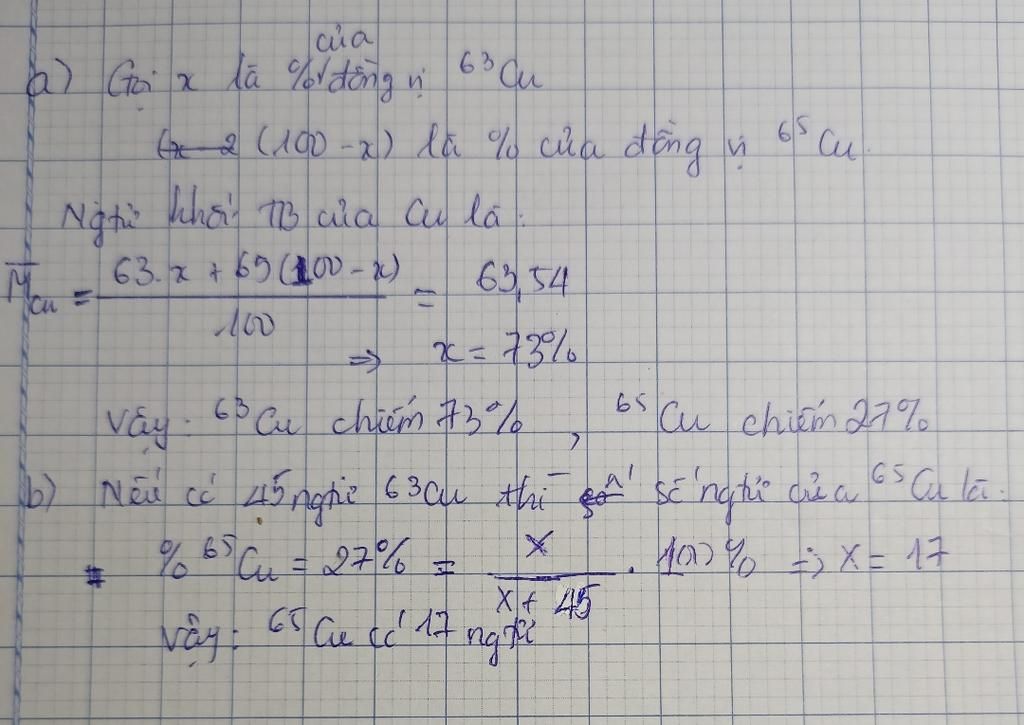 a) Gọi x là % của đồng vị ⁶³Cu
(100 - x) là % của đồng vị ⁶⁵Cu.
Ngtử khối TB của Cu là:
M̅cu = (63.x + 65(100 - x)) / 100 = 63,54
⇒ x = 73%
Vậy: ⁶³Cu chiếm 73%, ⁶⁵Cu chiếm 27%
b) Nếu có 45 ngtử 63Cu thì số ngtử của ⁶⁵Cu là:
% ⁶⁵Cu = 27% = x / (x + 45) . 100% ⇒ x = 17
Vậy: ⁶⁵Cu có 17 ngtử